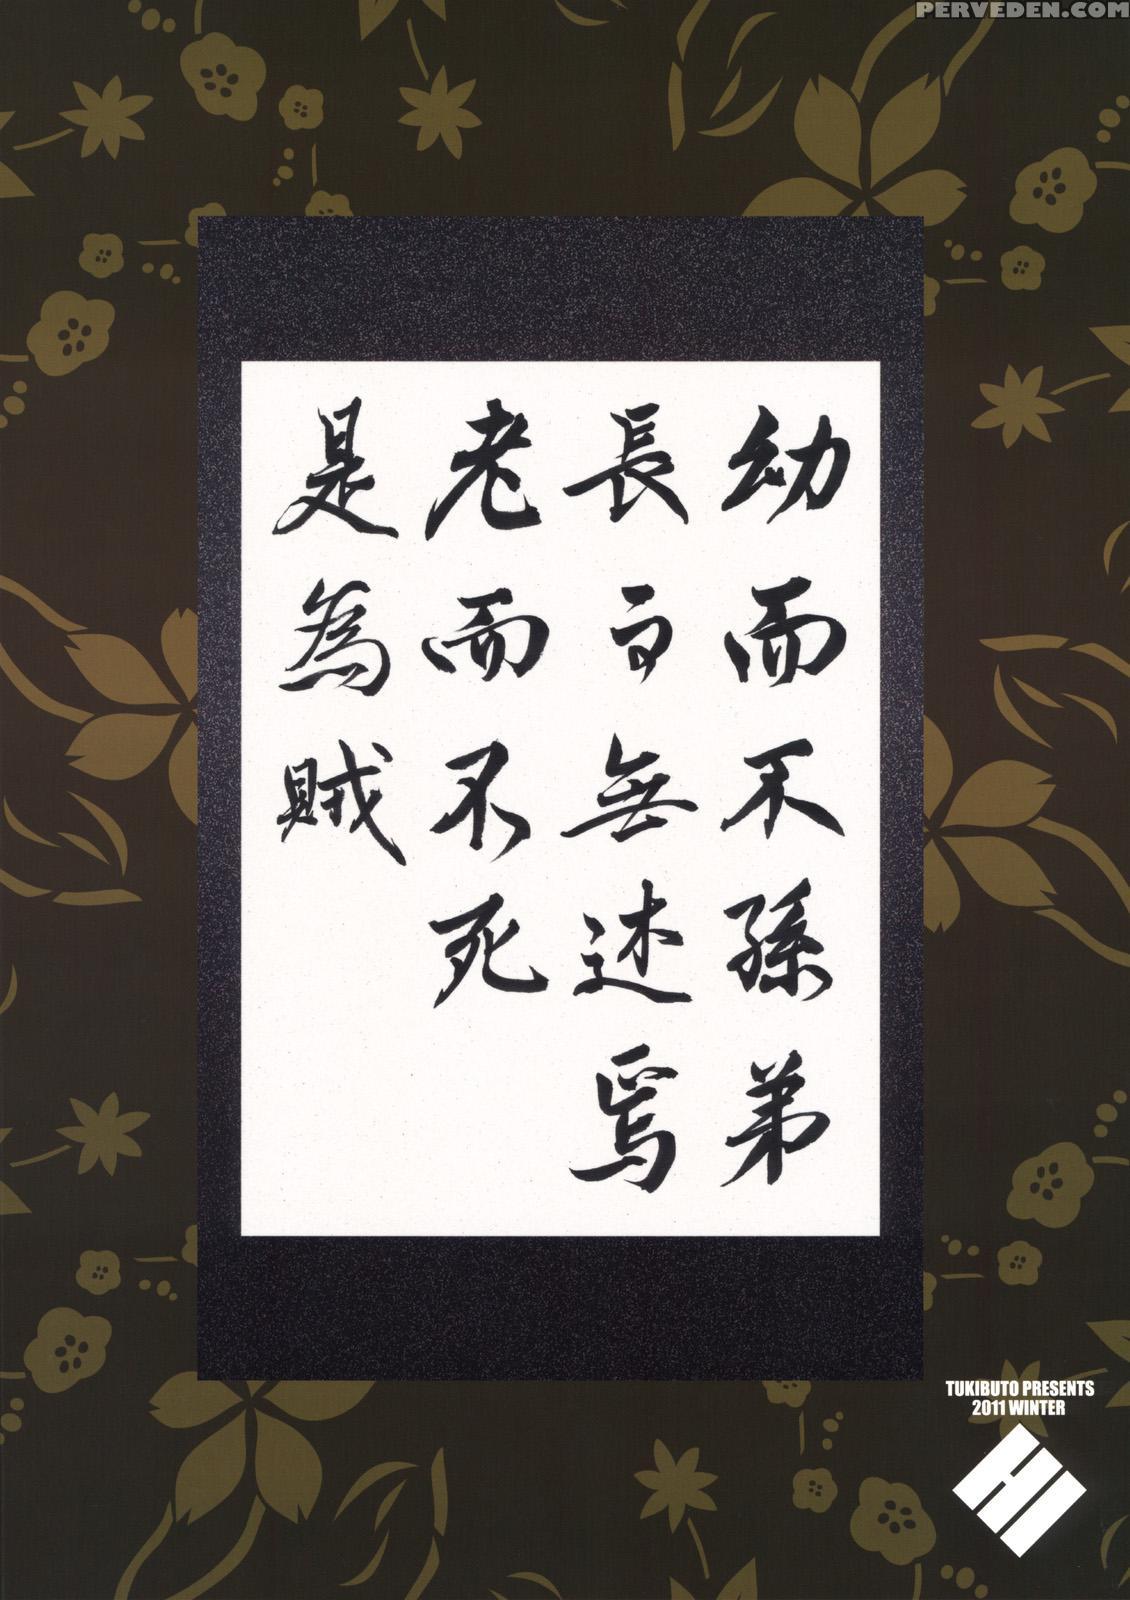 PERVEDEN.COM
幼而不孫弟
長而無述焉
老而不死
是為賊
TUKIBUTO PRESENTS
2011 WINTER
HI